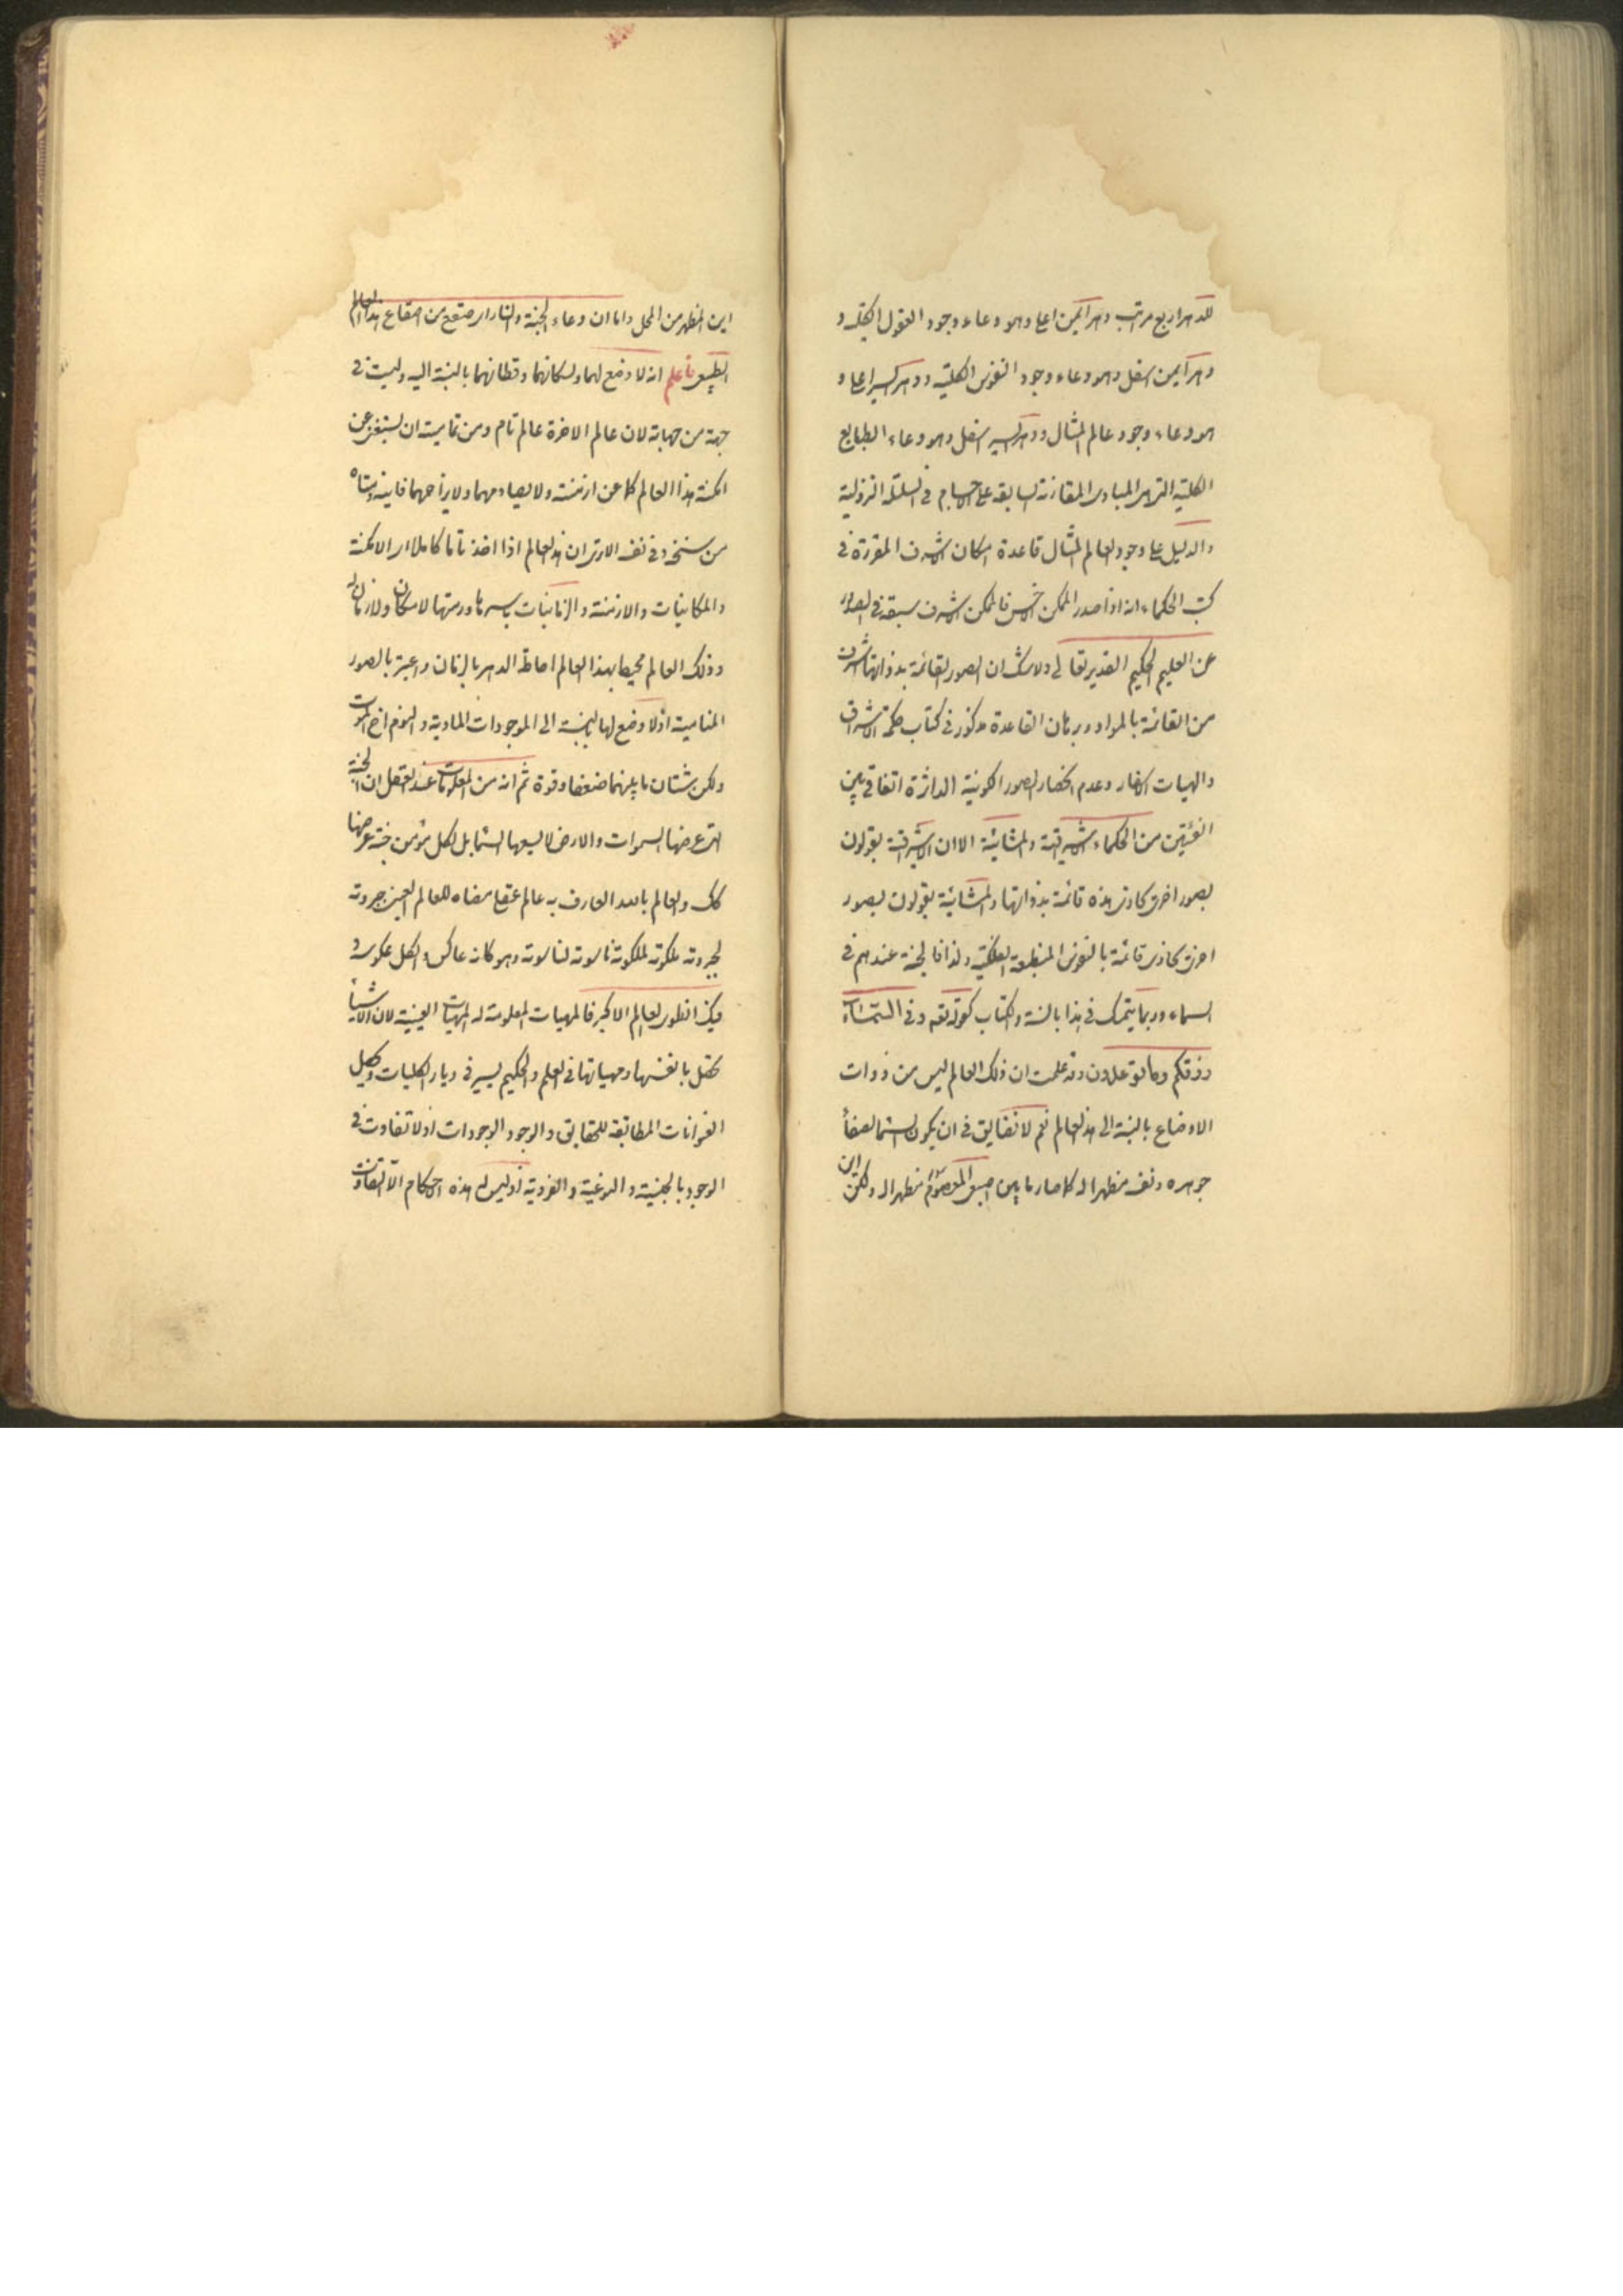 للدهر اربع مراتب دهر ايمن اعلى وهو وعاء وجود العقول الكلية و
دهر ايمن اسفل وهو وعاء وجود النفوس الكلية ودهر ايسر اعلى و
هو وعاء وجود عالم المثال ودهر ايسر اسفل وهو وعاء الطبايع
الكلية التى هى المبادى المقارنة السابقة على الاجسام فى السلسلة النزولية
والدليل على وجود العالم المثال قاعدة امكان الاشرف المقررة فى
كتب الحكماء انه اذا صدر الممكن الاخس فالممكن الاشرف سبقه فى الصدور
عن العليم الحكيم القدير تعالى ولا شك ان الصور القائمة بذواتها اشرف
من القائمة بالمواد وبرهان القاعدة مذكور فى كتاب حكمة الاشراق
والهيات الاسفار وعدم انحصار الصور الكونية الداثرة اتفاقى بين
الفئتين من الحكماء الاشراقية والمشائية الا ان الاشراقية يقولون
بصور اخرى تحاذى هذه قائمة بذواتها والمشائية يقولون بصور
اخرى تحاذى قائمة بالنفوس المنطبعة الفلكية ولذا فالجنة عندهم فى
السماء وربما يتمسك فى هذا بالسنة والكتاب كقوله تعه وفى السماء
رزقكم وما توعدون وقد علمت ان ذلك العالم ليس من ذوات
الاوضاع بالنسبة الى هذا العالم نعم لا نضايق فى ان يكون السماء لصفاء
جوهره ونفسه مظهرا له كما صار ما بين اصبعى المعصوم مظهرا له ولكن اين
اين المظهر من المحل واما ان وعاء الجنة والنار اى صقع من اصقاع هذا العالم
الطبيعى فاعلم انه لا وضع لهما ولسكانهما وقطانهما بالنسبة اليه وليست فى
جهة من جهاته لان عالم الاخرة عالم تام ومن تماميته ان يستغنى عن
امكنة هذا العالم كما عن ازمنته ولا يصادمهما ولا يزاحمهما فاينه ومتاه
من سنخه وفى نفسه الا ترى ان هذا العالم اذا اخذ تاما كاملا اى الامكنة
والمكانيات والازمنة والزمانيات باسرها ورمتها لا مكان ولا زمان له
وذلك العالم محيط بهذا العالم احاطة الدهر بالزمان واعتبر بالصور
المنامية اذ لا وضع لها بالنسبة الى الموجودات المادية والنوم اخ الموت
ولكن شتان ما بينهما ضعفا وقوة ثم انه من المعلومات عند العقل ان الجنة
التى عرضها السموات والارض لا يسعها السماء بل لكل مؤمن جنة عرضها
كك والعالم بالله العارف به عالم عقلى مضاه للعالم العينى جبروته
لجبروته ملكوته لملكوته ناسوته لناسوته وهو كانه عاكس والكل عكوسه و
فيك انطوى العالم الاكبر فالمهيات المعلومة له المهيات العينية لان الاشياء
تحصل بانفسها ومهياتها فى العلم والحكيم يسير فى ديار الكليات وتحصيل
العنوانات المطابقة للحقايق والوجود الوجودات اذ لا تفاوت فى
الوجود بالجنسية والنوعية والفردية اذ ليس له هذه الاحكام الا التفاوت